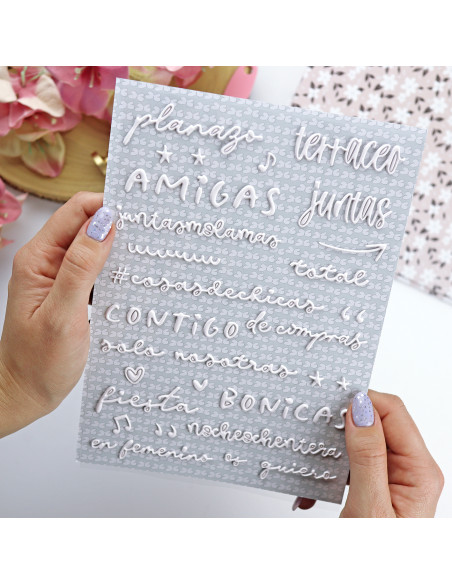 planazo terraceo
AMIGAS juntas
juntasmolamas
total
#cosasdechicas
CONTIGO de compras
solo nosotras
fiesta BONICAS
nocheochentera
en femenino os quiero